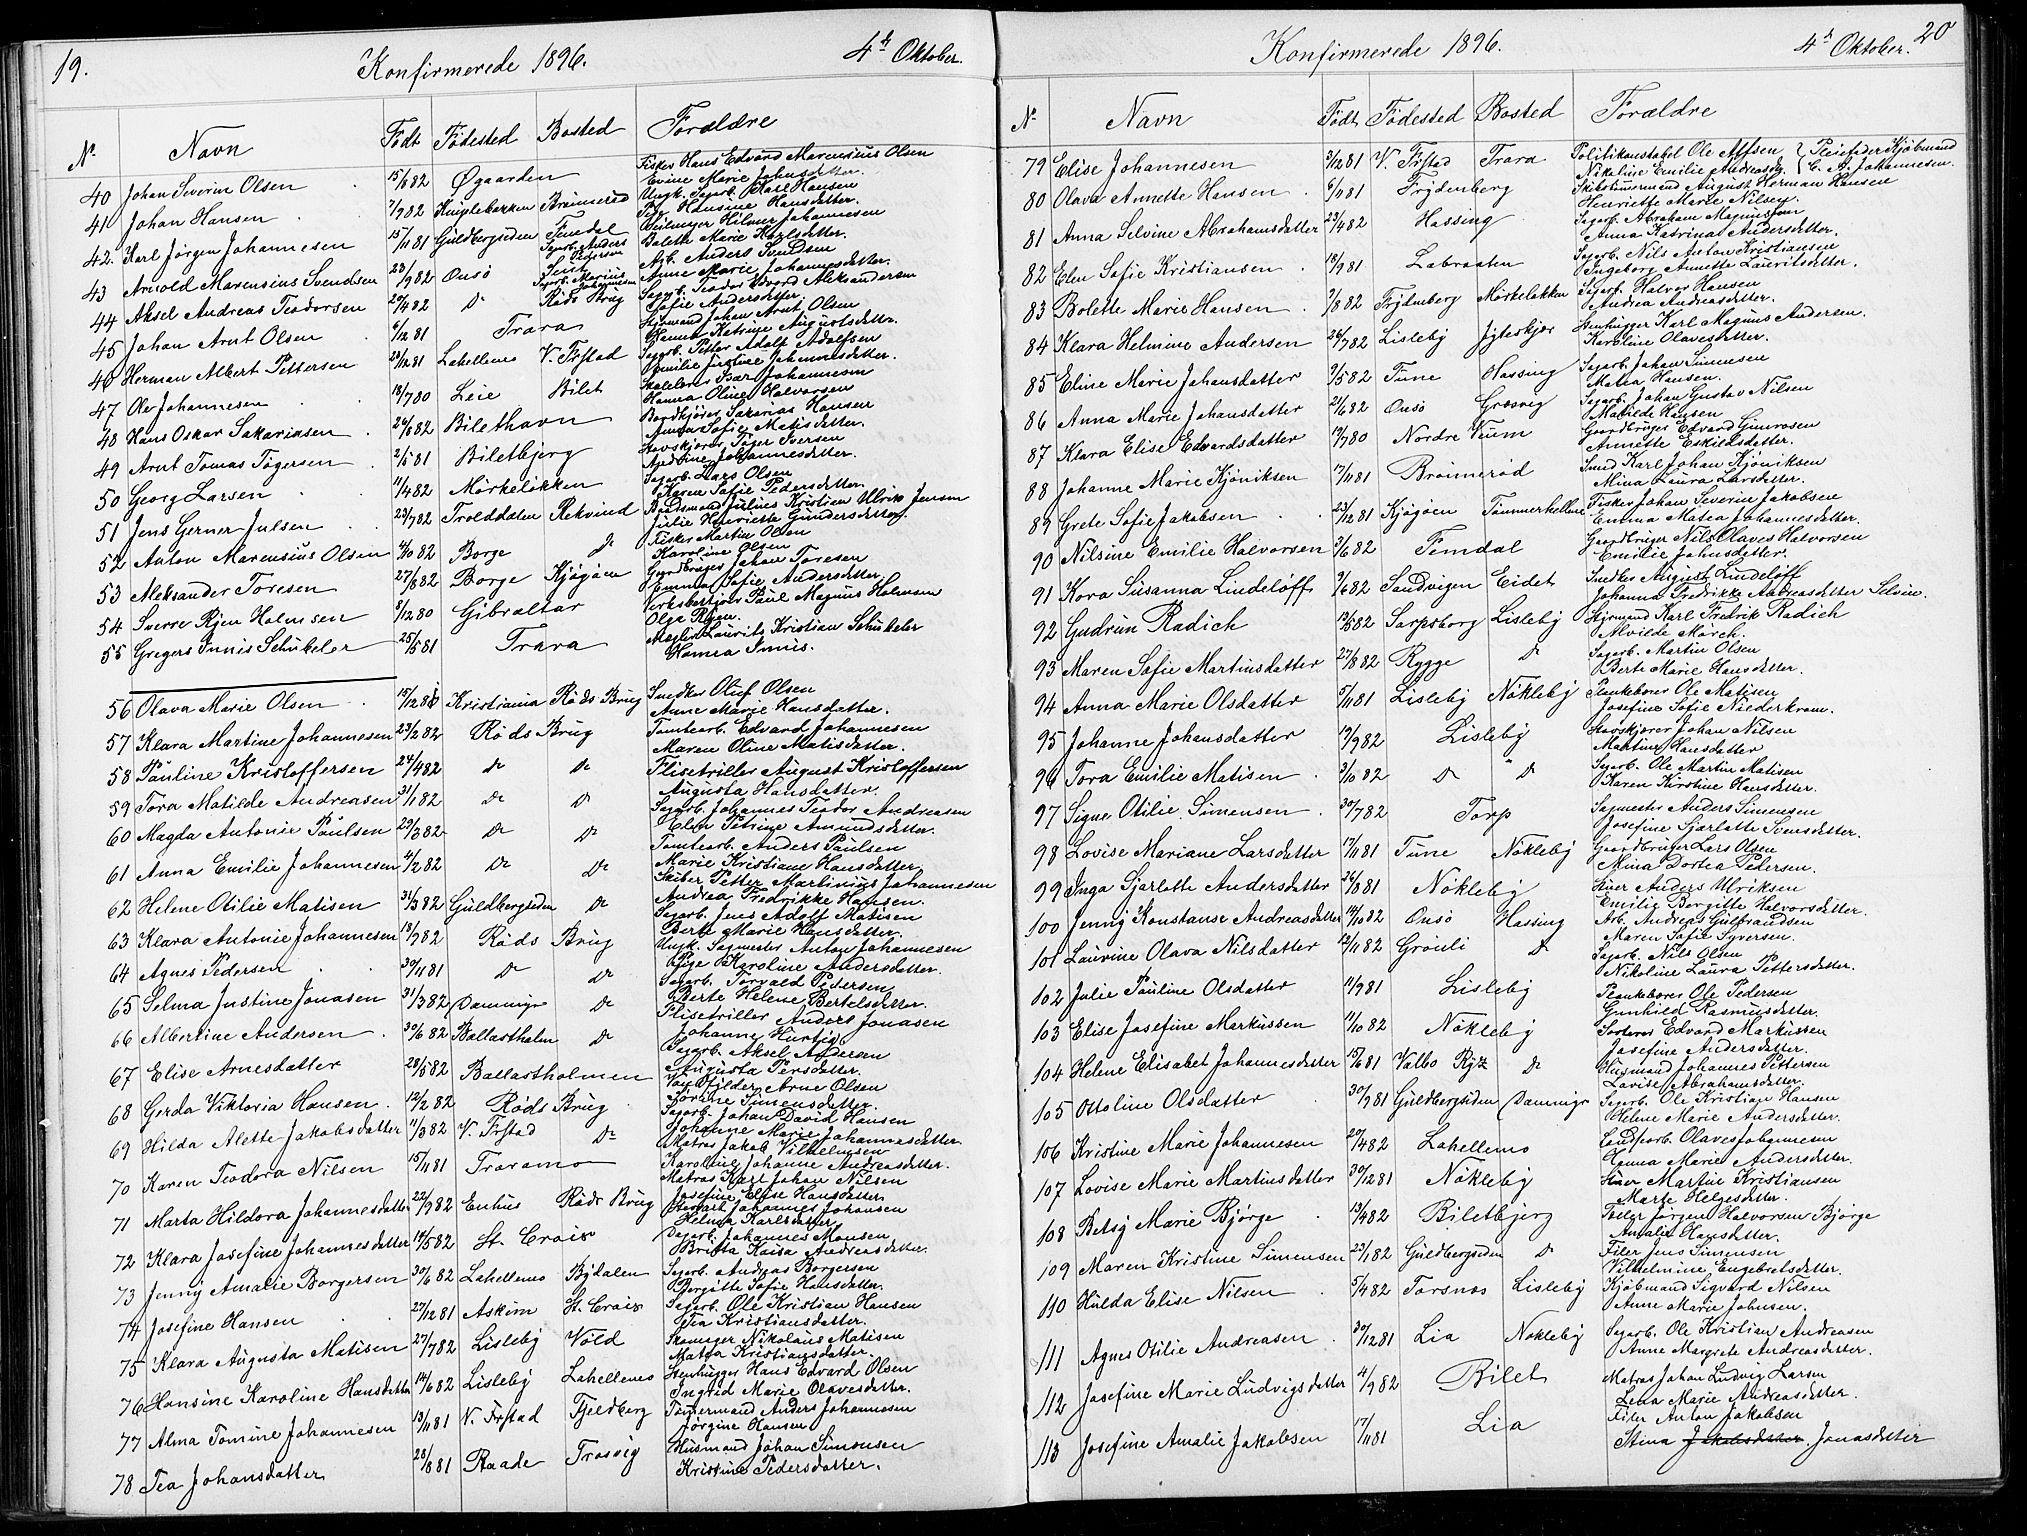 19.
Konfirmerede 1896.
4de Oktober.
No Navn Født Fødested Bosted Forældre
40 Johan Severin Olsen 15/6 82 Øgaarden Fisker Hans Edvard Marensius Olsen
Evine Marie Johnsdatter.
41 Johan Hansen 7/9 82 Kniplebakken Brønnerød Ungk. Sagarb. Karl Hansen
Pig. Hansine Hansdatter.
42. Karl Jørgen Johannesen 15/11 81 Guldbergsiden Femdal Hilmer Johannesen
Bolette Marie Karlsdatter.
43 Arnold Marensius Svendsen 23/9 82 Onsø Sagarb. Anders Pedersen Arb. Anders Svendsen
Anne Marie Johannesdatter.
44 Aksel Andreas Teodorsen 20/4 82 Do Røds Brug Sagarb. Teodor Edvard Aleksandersen
Sofie Andersdatter.
45 Johan Arnt Olsen 6/12 81 Trara Styrmand Johan Arnt Olsen
Hanna Katrine Augustsdatter.
46 Herman Albert Pettersen 29/12 81 Lahellemo V. Frstad Sagarb. Petter Adolf Adolfsen
Emilie Justine Johannesdatter.
47 Ole Johannesen 18/7 80 Leie Bilet Isak Johannesen
Hanna Oline Halvorsen
48 Hans Oskar Sakariasen 26/6 82 Bilethavn Bordkjører Sakarias Hansen
Anna Sofie Matisdatter.
49 Arnt Tomas Tøgersen 2/5 81 Biletbjerg Stavskjører Tøger Iversen
Johannesdatter.
50 Georg Larsen 11/4 82 Mørkeløkken Sagarb. Lars Olsen
Maren Sofie Pedersdatter.
51 Jens Gerner Julsen 29/7 82 Trolddalen Rekvind Baadsmand Julius Kristian Ulrik Jensen
Julie Henriette Gundersdatter.
52 Anton Marensius Olsen 4/10 82 Borge Do Fisker Martin Olsen
Karoline Olsen
53 Aleksander Toresen 27/8 82 Borge Kjøgøen Gaardbruger Johan Toresen
Emma Sofie Andersdatter.
54 Sverre Rjen Holmsen 8/12 80 Gibraltar Verksbestyrer Paul Magnus Holmsen
Olga Rjen.
55 Gregers Innis Schübeler 25/5 81 Trara Mægler Laurits Kristian Schübeler
Hanna Innis.
56 Olava Marie Olsen 15/12 81 Kristiania Røds Brug Snedker Oluf Olsen
Anne Marie Hansdatter.
57 Klara Martine Johannesen 23/2 82 Røds Brug Tomtearb. Edvard Johannesen
Maren Oline Matisdatter.
58 Pauline Kristoffersen 24/4 82 Do Do Flisetriller August Kristoffersen
Augusta Hansdatter.
59 Tora Matilde Andreasen 31/1 82 Do Do Sagarb. Johannes Teodor Andreasen
Elen Petrine Amundsdatter.
60 Magda Antonie Paulsen 29/3 82 Do Do Tomtearb. Anders Paulsen
Marie Kristiane Hansdatter.
61 Anna Emilie Johannesen 4/2 82 Do Do Skiber Petter Martinius Johannesen
Andrea Fredrikke Hansen.
62 Helene Otilie Matisen 31/3 82 Guldbergsiden Do Sagarb. Jens Adolf Matisen
Berte Marie Hansdatter.
63 Klara Antonie Johannesen 18/7 82 Røds Brug Ungk. Sagmester Anton Johannesen
Pige Karoline Andersdatter.
64 Agnes Pedersen 30/11 81 Do Do Sagarb. Torvald Pedersen
Berte Helene Bertelsdatter.
65 Selma Justine Jonasen 31/3 82 Damnige Do Flisetriller Anders Jonasen
Johanne Hurtig
66 Albertine Andersen 30/6 82 Ballastholm Do Sagarb. Aksel Andersen
Augusta Persdatter.
67 Elise Arnesdatter 28/5 82 Ballastholmen Arne Olsen
Josine Simensdatter.
68 Gerda Viktoria Hansen 12/2 82 Røds Brug Sagarb. Johan David Hansen
Johanne Marie Johannesdatter
69 Hilda Alette Jakobsdatter 11/3 82 V. Frstad Do Matros Jakob Vilhelmsen
Karoline Johanne Andreasdatter.
70 Karen Teodora Nilsen 15/11 81 Traramo Matros Karl Johan Nilsen
Josefine Elise Hansdatter
71 Marta Hildora Johannesdatter 22/9 82 Enhus Røds Brug Stuart Johannes Johansen
Helma Karlsdatter
72 Klara Josefine Johannesdatter 14/5 82 St. Croix Dagarb. Johannes Monsen
Britta Kaisa Andreasdatter.
73 Jenny Amalie Borgersen 30/6 82 Lahellemo Bydalen Sagarb. Andreas Borgersen
Borgitte Sofie Hansdatter.
74 Josefine Hansen 27/12 81 Askim St. Croix Sagarb. Ole Kristian Hansen
Tea Kristiansdatter.
75 Klara Augusta Matisen 27/7 82 Lisleby Vold Skomager Nikolaus Matisen
Matea Kristiansdatter.
76 Hansine Karoline Hansdatter 14/6 82 Lisleby Lahellemo Stenhugger Hans Edvard Olsen
Ingrid Marie Olavesdatter.
77 Alma Tomine Johannesen 13/11 81 V. Frstad Fjeldberg Tømmermand Anders Johannesen
Jørgine Hansen
78 Tea Johansdatter 28/8 81 Raade Trosvig Husmand Johan Simonsen
Kristine Pedersdatter.
20
Konfirmerede 1896.
4de Oktober.
No Navn Født Fødested Bosted Forældre
79 Elise Johannesen 3/12 81 V. Frstad Trara Politikonstabel Ole Alfsen { Pleiefader Kjøbmand
Nikoline Emilie Andreasdtr. { C. A. Johannesen.
80 Olava Annette Hansen 6/11 81 Frydenberg Skibstømmermand August Herman Hansen
Henriette Marie Nilsen.
81 Anna Selvine Abrahamsdatter 23/4 82 Hassing Sagarb. Abraham Magnussen
Anna Katrina Andersdatter.
82 Elen Sofie Kristiansen 18/9 81 Labraaten Sagarb. Nils Anton Kristiansen
Ingeborg Annette Lauritsdatter.
83 Bolette Marie Hansen 7/8 82 Frydenberg Mørkeløkken Sagarb. Halvor Hansen
Andrea Andreasdatter.
84 Klara Helmine Andersen 26/7 82 Lisleby Stenhugger Karl Magnus Andersen.
Karoline Olavesdatter.
85 Eline Marie Johansdatter 7/5 82 Tune Hassing Sagarb. Johan Simensen
Matea Hansen.
86 Anna Marie Johansdatter 21/6 82 Onsø Græsvig Sagarb. Johan Gustav Nilsen
Matilde Hansen
87 Klara Elise Edvardsdatter 19/7 80 Nordre Veum Gaardbruger Edvard Gunrosen
Annette Eskildsdatter.
88 Johanne Marie Kjøniksen 17/11 81 Brønnerød Smed Karl Johan Kjøniksen
Mina Laura Larsdatter.
89 Grete Sofie Jakobsen 23/12 81 Kjøgøen Tømmerhellene Fisker Johan Severin Jakobsen
Emma Matea Johannesdatter.
90 Nilsine Emilie Halvorsen 3/6 82 Femdal Gaardbruger Nils Olaves Halvorsen
Emilie Johnsdatter.
91 Kora Susanna Lindeløff 7/6 82 Sandvigen Eidet Snedker August Lindeløff
Johanna Fredrikke Andreasdatter Selvin.
92 Gudrun Radich 13/5 82 Sarpsborg Lisleby Styrmand Karl Fredrik Radich
Alvilde Mørch.
93 Maren Sofie Martinsdatter 27/8 82 Rygge Do Sagarb. Martin Olsen
Berte Marie Hansdatter.
94 Anna Marie Olsdatter 5/11 81 Lisleby Nøkleby Plankebærer Ole Matisen
Josefine Sofie Niederkrom.
95 Johanne Johansdatter 19/9 82 Lisleby Stavskjører Johan Nilsen
Martine Hansdatter
96 Tora Emilie Matisen 3/10 82 Do Do Sagarb. Ole Martin Matisen
Karen Kirstine Hansdatter.
97 Signe Otilie Simensen 30/7 82 Torp Sagmester Anders Simensen
Josefine Sjarlotte Svensdatter.
98 Lovise Mariane Larsdatter 17/11 81 Tune Nøkleby Gaardbruger Lars Olsen
Mina Dortea Pedersen.
99 Inga Sjarlotte Andersdatter 26/8 81 Nøkleby Anders Ulriksen
Emilie Borgitte Halvorsdatter.
100 Jenny Konstanse Andreasdatter 14/10 82 Onsø Hassing Arb. Andreas Gulbrandsen
Maren Sofie Syversen.
101 Laurine Olava Nilsdatter 12/11 82 Grønli Do Sagarb. Nils Olsen
Nikoline Laura Pettersdatter.
102 Julie Pauline Olsdatter 11/9 81 Lisleby Plankebærer Ole Pedersen
Gunhild Rasmusdatter.
103 Elise Josefine Markussen 11/10 82 Nøkleby Sorterer Edvard Markussen
Josefine Andersdatter.
104 Helene Elisabet Johannesdatter 15/6 81 Valbo Do Husmand Johannes Pettersen
Lovise Abrahamsdatter.
105 Ottoline Olsdatter 30/9 81 Guldbergsiden Damnige Sagarb. Ole Kristian Hansen
Helene Marie Andersdatter.
106 Kristine Marie Johannesen 20/4 82 Lahellemo Olaves Johannesen
Hanna Marie Andersdatter.
107 Lovise Marie Martinsdatter 30/12 81 Nøkleby Martin Kristiansen
Marte Helgesdatter.
108 Betsy Marie Bjørge 13/4 82 Biletbjerg Jørgen Halvorsen Bjørge
Amalie Hansdatter.
109 Maren Kristine Simensen 23/1 82 Guldbergsiden Do Filer Jens Simensen
Vilhelmine Engebretsdatter.
110 Hulda Elise Nilsen 5/4 82 Torsnæs Lisleby Kjøbmand Sigvard Nilsen
Anne Marie Johnsen.
111 Agnes Otilie Andreasen 30/12 81 Lia Nøkleby Sagarb. Ole Kristian Andreasen
Anne Margrete Andreasdatter.
112 Josefine Marie Ludvigsdatter 4/9 82 Bilet Matros Johan Ludvig Larsen
Lena Marie Andreasdatter.
113 Josefine Amalie Jakobsen 17/11 81 Lia Filer Anton Jakobsen
Stina Jakobsdatter. Jonasdatter